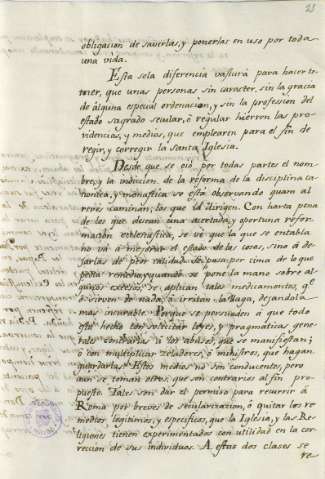 23
obligacion de saverlas, y ponerlas en uso por toda
una vida.
Esta sola diferencia vastará para hacer te
mer, que unas personas sin caracter, sin la gracia
de alguna especial ordenacion, y sin la profesion del
estado sagrado secular, ó regular hierren las pro
videncias, y medios, que emplearen para el fin de
regir, y corregir la Santa Iglesia.
Desde que se oió por todas partes el nom
bre, y la indicion de la reforma de la disciplina ca
nonica, y monastica se está observando quam al
reves caminan, los que la dirigen. Con harta pena
de los que desean una acertada, y oportuna refor
macion eclesiastica, se vé que la que se entabla
no vá á mejorar el estado de las cosas, sino á de
jarlas de peor calidad. Se pasa por cima de lo que
pedia remedio, y quando se pone la mano sobre al
gunos excesos, se aplican tales medicamentos, qe.
ó sirven de nada, ó irritan la llaga, dejandola
mas incurable. Porque se persuaden á que todo
está hecho con solicitar leyes, y pragmaticas gene
rales contrarias á los abusos, que se manifiestan;
ó con multiplicar zeladores, ó ministros, que hagan
guardarlas. Estos medios no son conducentes, pero
aun se toman otros, que son contrarios al fin pro
puesto. Tales son dar el permiso para recurrir á
Roma por breves de secularizacion, ó quitar los re
medios legitimos, y especificos, que la Iglesia, y las Re
ligiones tienen experimentados con utilidad en la cor
reccion de sus individuos. A estas dos clases se
re